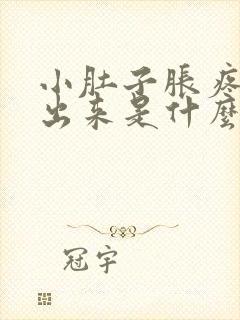 小肚子胀疼
出来是什麽
冠宇